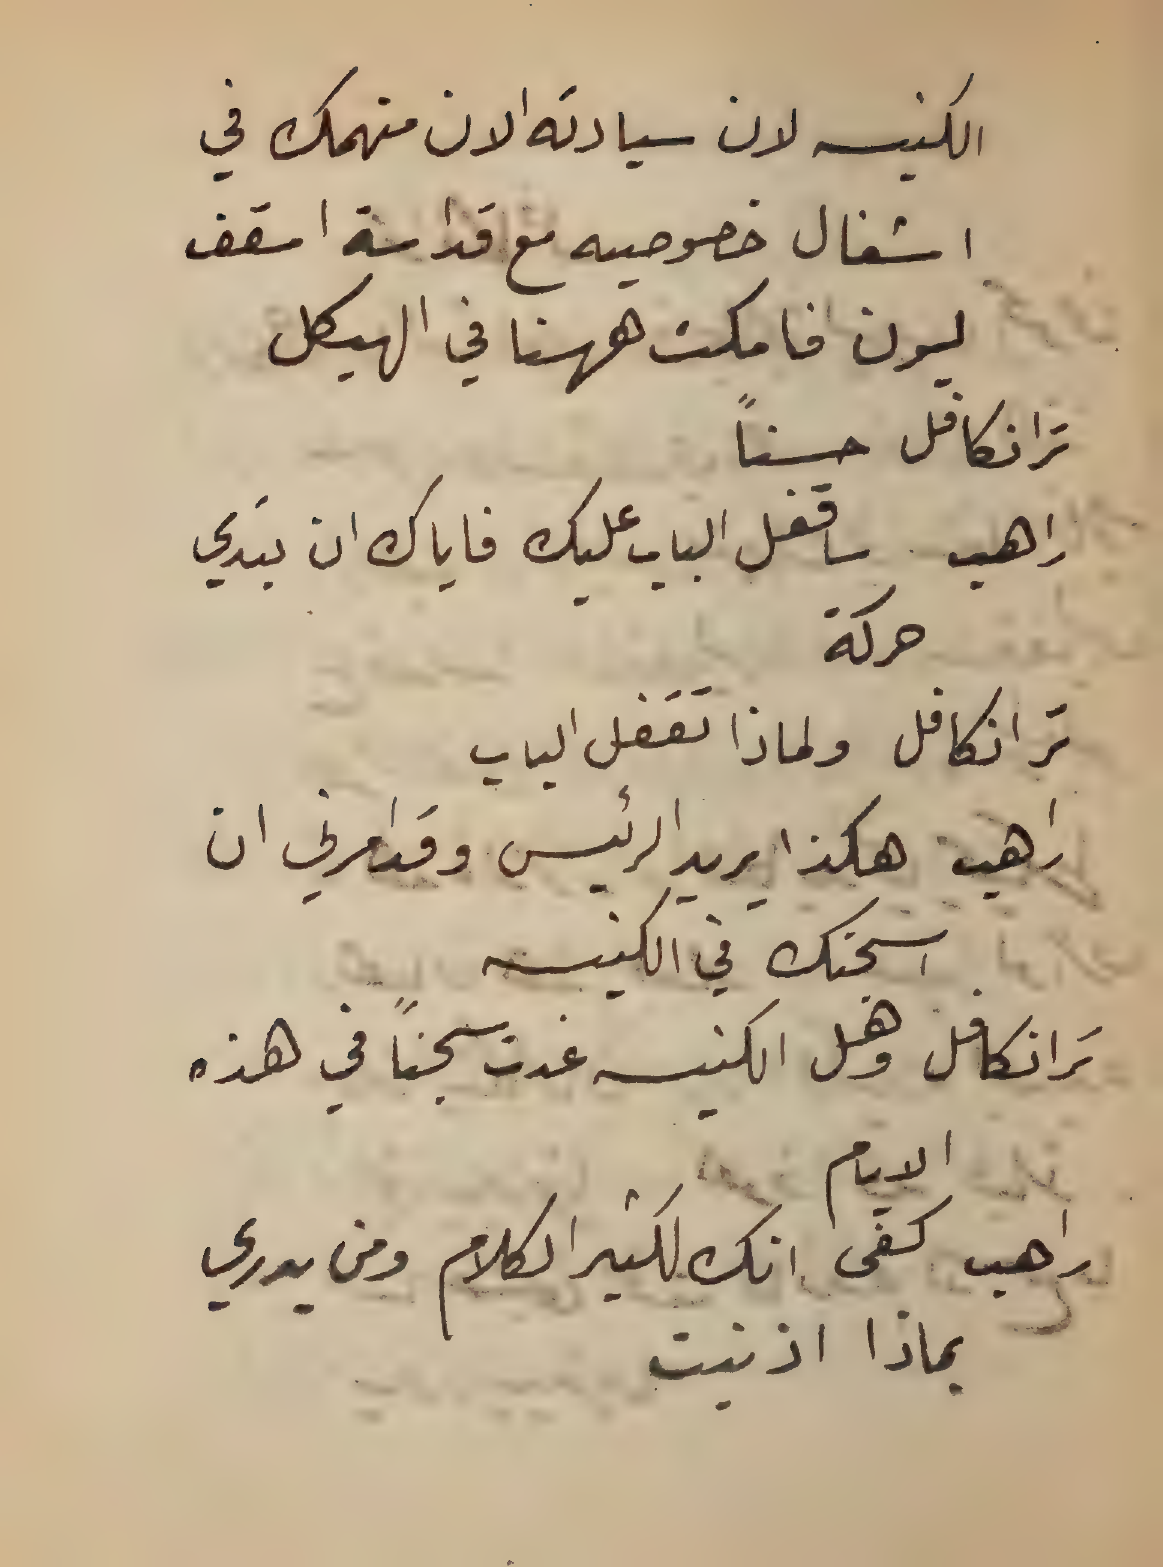 الكنيسه لان سيادته الان منهمك في
اشغال خصوصيه مع قداسة اسقف
ليون فامكث ههنا في الهيكل
ترانكافل حسناً
راهب ساقفل الباب عليك فاياك ان تبدي
حركة
ترانكافل ولماذا تقفل الباب
راهب هكذا يريد الرئيس وقد امرني ان
اسجنك في الكنيسه
ترانكافل وهل الكنيسه غدت سجناً في هذه
الايام
راهب كفى انك لكثير الكلام ومن يدري
بماذا اذنبت